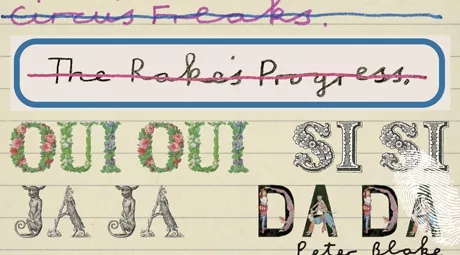 Circus Freaks.
The Rake's Progress.
OUI OUI SI SI
JA JA DA DA
Peter Blake